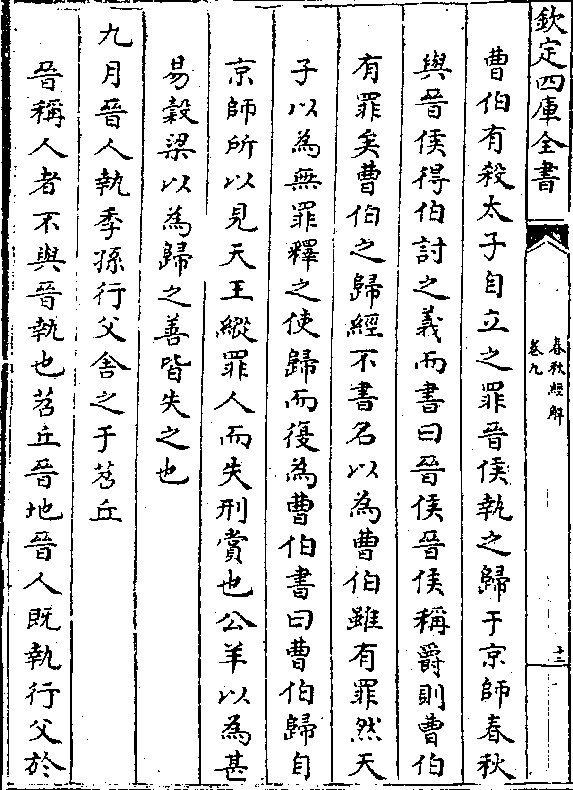 欽定四庫全書
春秋經解
卷九
十三
曹伯有殺太子自立之罪晉侯執之歸于京師春秋
與晉侯得伯討之義而書曰晉侯晉侯稱爵則曹伯
有罪矣曹伯之歸經不書名以為曹伯雖有罪然天
子以為無罪釋之使歸而復為曹伯書曰曹伯歸自
京師所以見天王縱罪人而失刑賞也公羊以為甚
易穀梁以為歸之善皆失之也
九月晉人執季孫行父舍之于苕丘
晉稱人者不與晉執也苕丘晉地晉人既執行父於